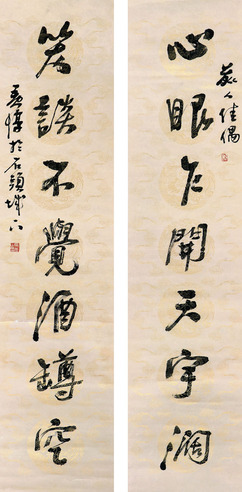 心眼乍開天宇闊
古人佳偶
笑談不覺酒罇空
孟惇於石頭城下